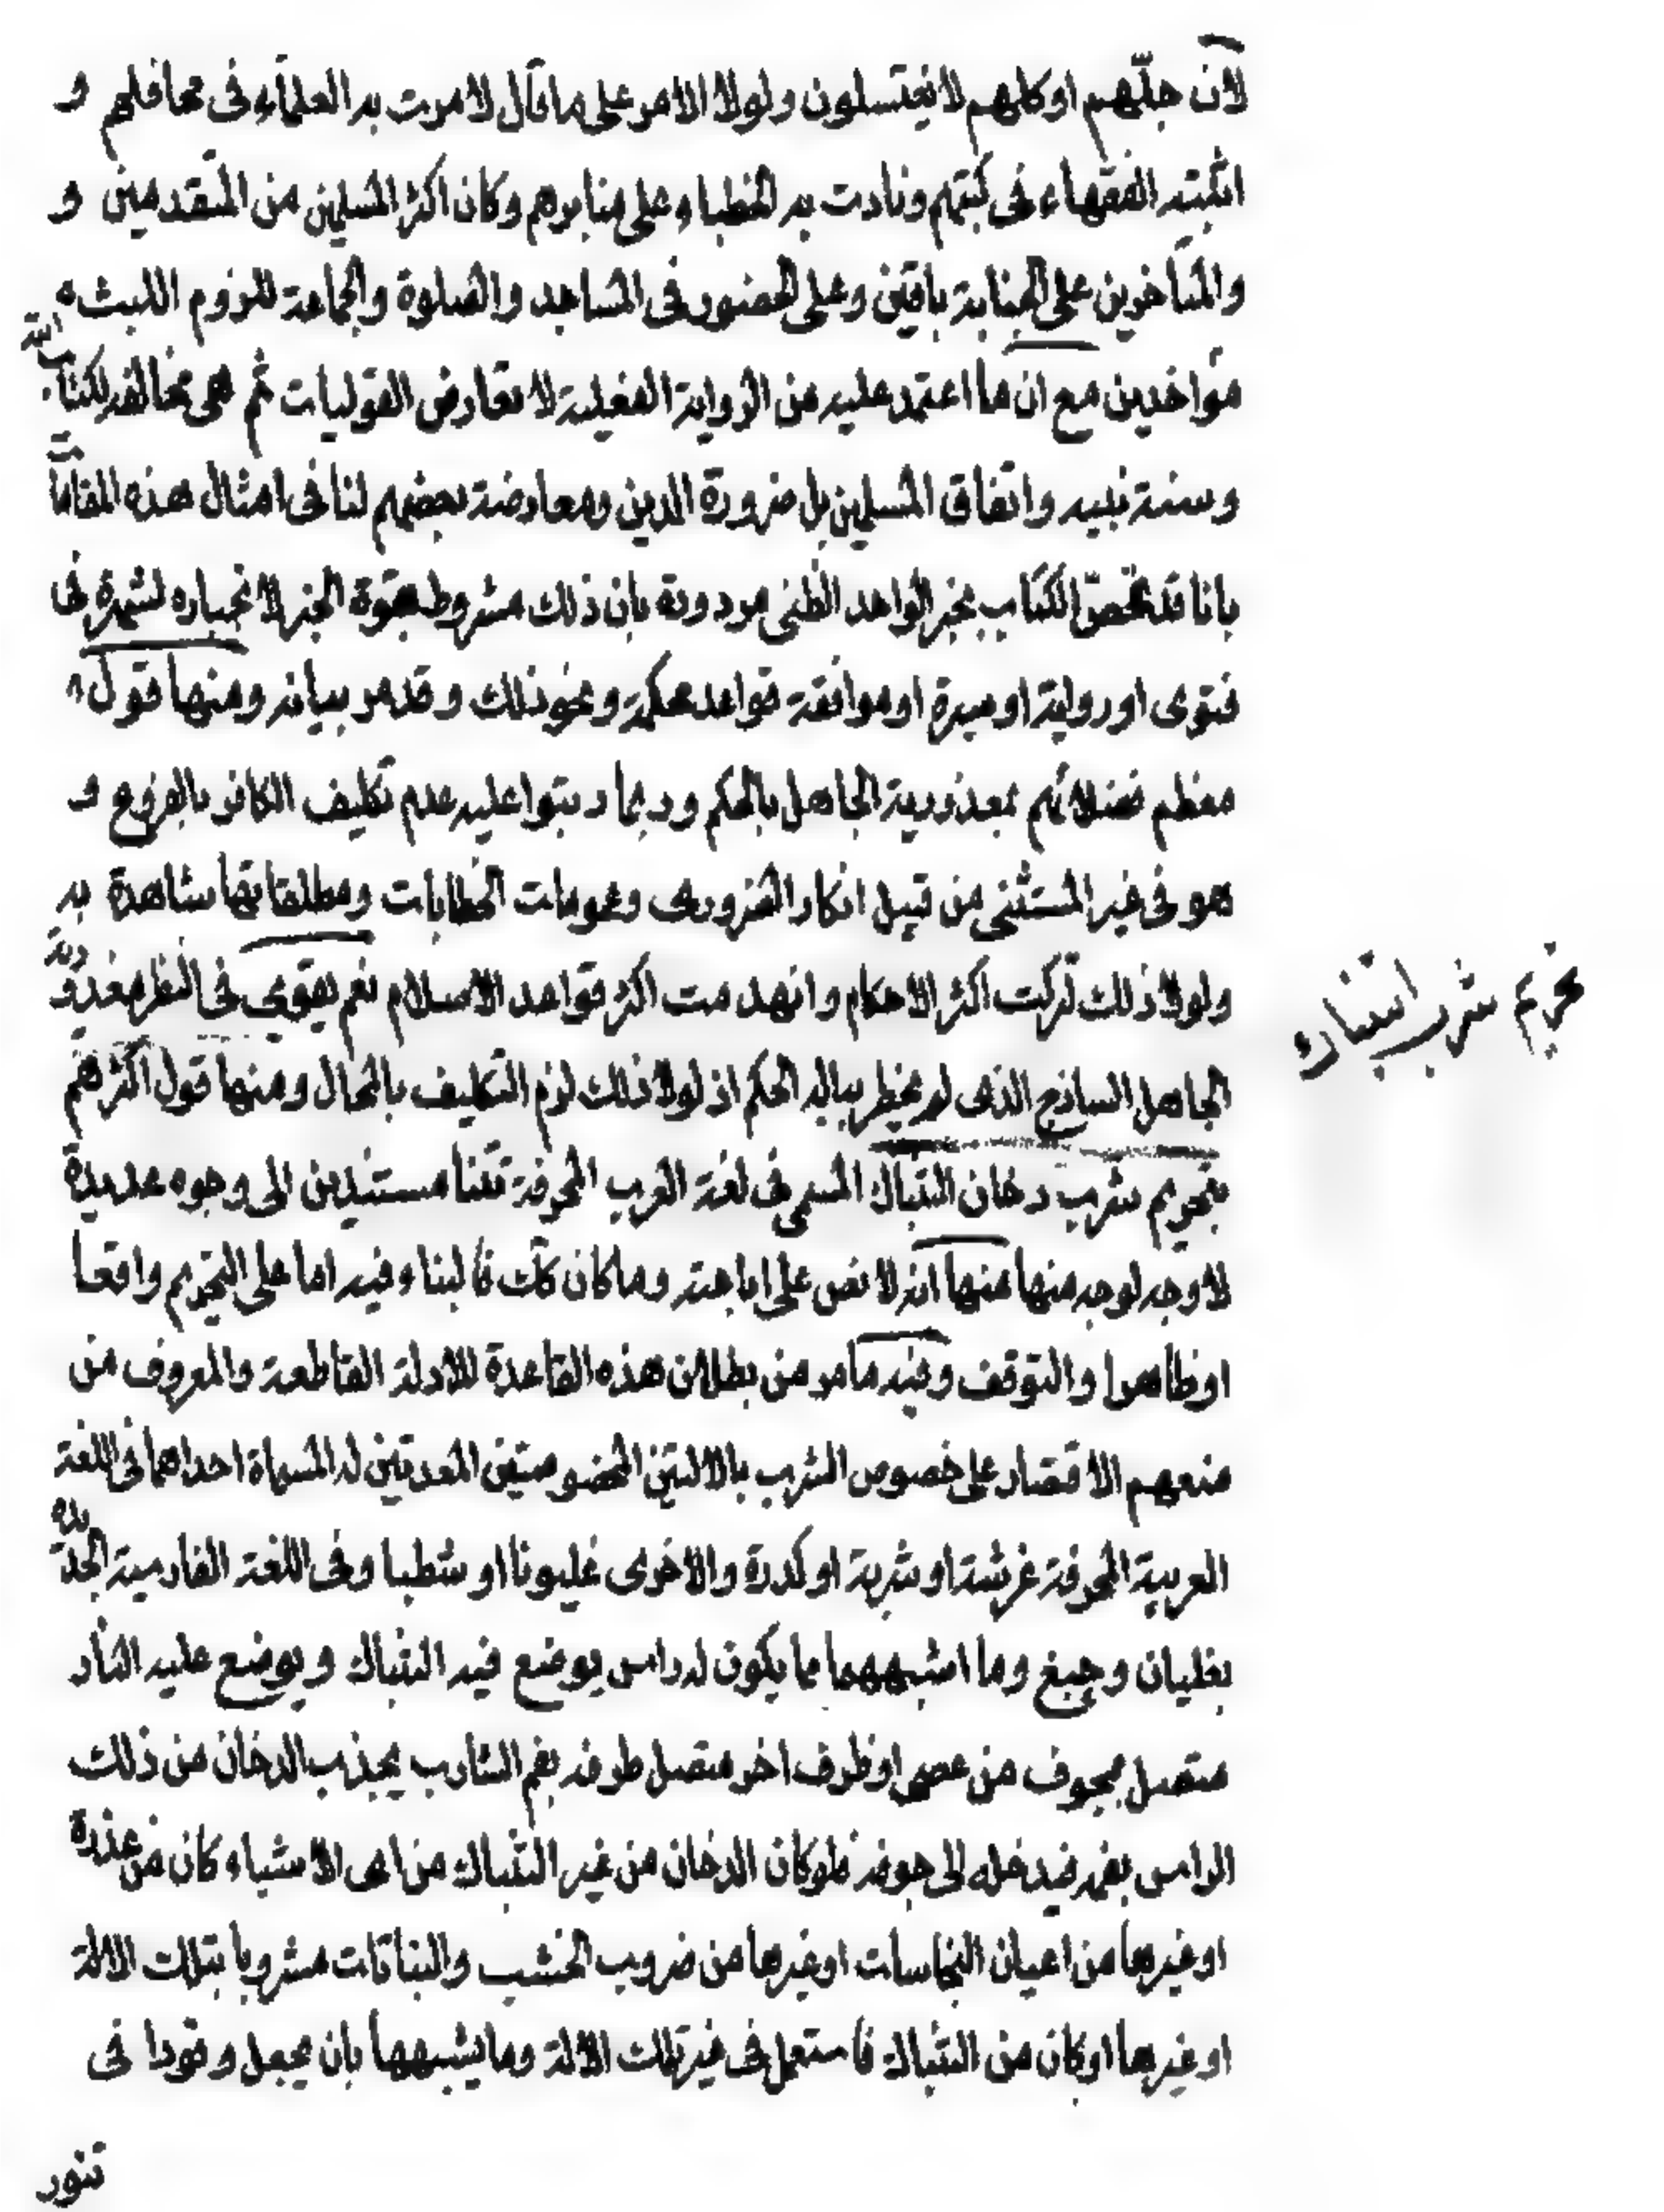 لان جلّهم او كلهم لا يغتسلون ولولا الامر على ما قال لامرت به العلماء فى محافلهم و
اثبته الفقهاء فى كتبهم ونادت به الخطباء على منابرهم وكان اكثر المسلمين من المتقدمين و
والمتاخرين على الجنابة باقين وعلى الحضور فى المساجد والصلوة والجماعة للزوم اللبث
مؤاخذين مع ان ما اعتمد عليه من الرواية الفعلية لا تعارض القوليات ثم هى مخالفة لكتاب الله
وسنة نبيه واتفاق المسلمين بل ضرورة الدين ومعارضة بعضهم لنا فى امثال هذه المقامات
بانا قد نخصّ الكتاب بخبر الواحد الظنى مردودة بان ذلك مشروط بقوة الخبر لانجباره لشهرة فى
فتوى او رواية او سيرة او موافقة قواعد محكمة ونحو ذلك وقد مر بيانه ومنها قول
معظم فضلائهم بمعذورية الجاهل بالحكم وربما رتبوا عليه عدم تكليف الكافر بالفروع و
هو فى غير المستثنى من قبيل انكار الضرورى وعمومات الخطابات ومطلقاتها شاهدة به
ولولا ذلك تركت اكثر الاحكام وانهدمت اكثر قواعد الاسلام نعم يقوى فى النظر معذورية
الجاهل الساذج الذى لم يخطر بباله الحكم اذ لولا ذلك لزم التكليف بالمحال ومنها قول اكثرهم
تحريم شرب التنباك
بتحريم شرب دخان التنباك المسمى فى لغة العرب المحرفة تتنا مستندين الى وجوه عديدة
لا وجه لوجه منها منها انه لا نص على اباحته وما كان كك فالبناء فيه اما على التحريم واقعا
او ظاهرا والتوقف وفيه ما مر من بطلان هذه القاعدة للادلة القاطعة والمعروف من
منعهم الاقتصار على خصوص الشرب بالالتين المخصوصتين المعدتين له المسماة احداهما فى اللغة
العربية المحرفة غرشة او شربة او كدرة والاخرى غليونا او شطبا وفى اللغة الفارسية الجديدة
بغليان وچبغ وما اشبههما مما يكون له راس يوضع فيه التنباك ويوضع عليه النار
متصل بمجوف من عصى او ظرف اخر متصل طرفه بفم الشارب يجذب الدخان من ذلك
الراس بفمه فيدخله الى جوفه فلو كان الدخان من غير التنباك من اى الاشياء كان من عذرة
او غيرها من اعيان النجاسات او غيرها من ضروب الخشب والنباتات مشروبا بتلك الالة
او غيرها او كان من التنباك فاستعمل فى غير تلك الالة وما يشبهها بان يجعل وقودا فى
تنور